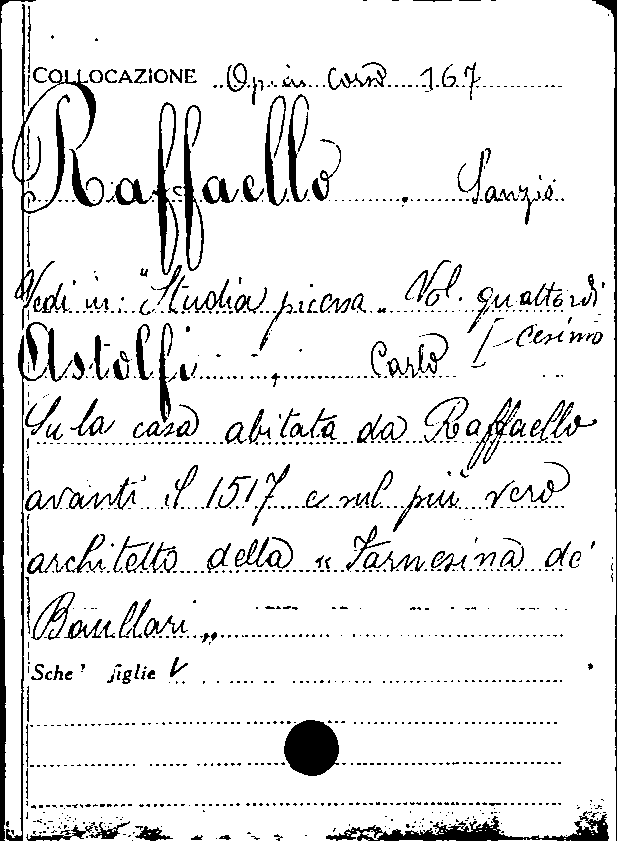 COLLOCAZIONE Op. in corso 167
Raffaello . Sanzio
Vedi in: "Studia picena„ Vol. quattordi
[-cesimo
Astolfi , Carlo
Su la casa abitata da Raffaello
avanti il 1517 e sul più vero
architetto della « Farnesina de'
Baullari „
Sche' figlie V